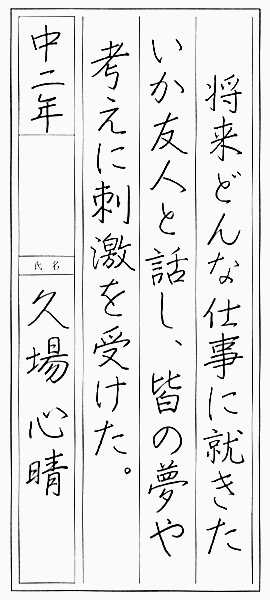 将来どんな仕事に就きた
いか友人と話し、皆の夢や
考えに刺激を受けた。
中二年
氏名
久場心晴